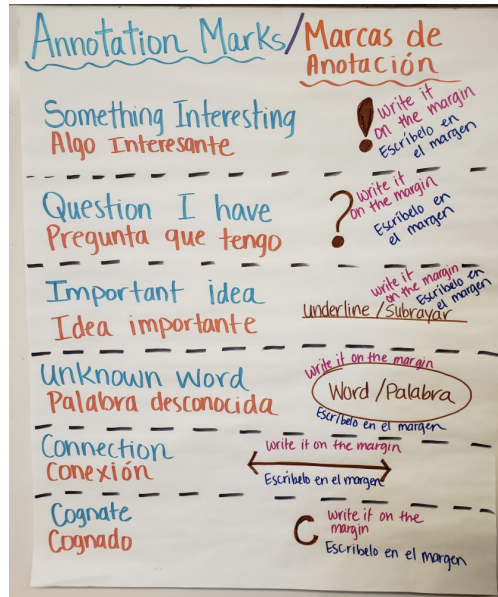 Annotation Marks/Marcas de
Anotación
Something Interesting
Algo Interesante
!
Write it
on the margin
Escríbelo en
el margen
Question I have
Pregunta que tengo
?
Write it
on the margin
Escríbelo en
el margen
Important idea
Idea importante
Write it
on the margin
Escríbelo en
el margen
underline/Subrayar
Unknown word
Palabra desconocida
Write it on the margin
Word/Palabra
Escríbelo en el margen
Connection
Conexión
Write it on the margin
Escríbelo en el margen
Cognate
Cognado
C
Write it on the
margin
Escríbelo en el margen